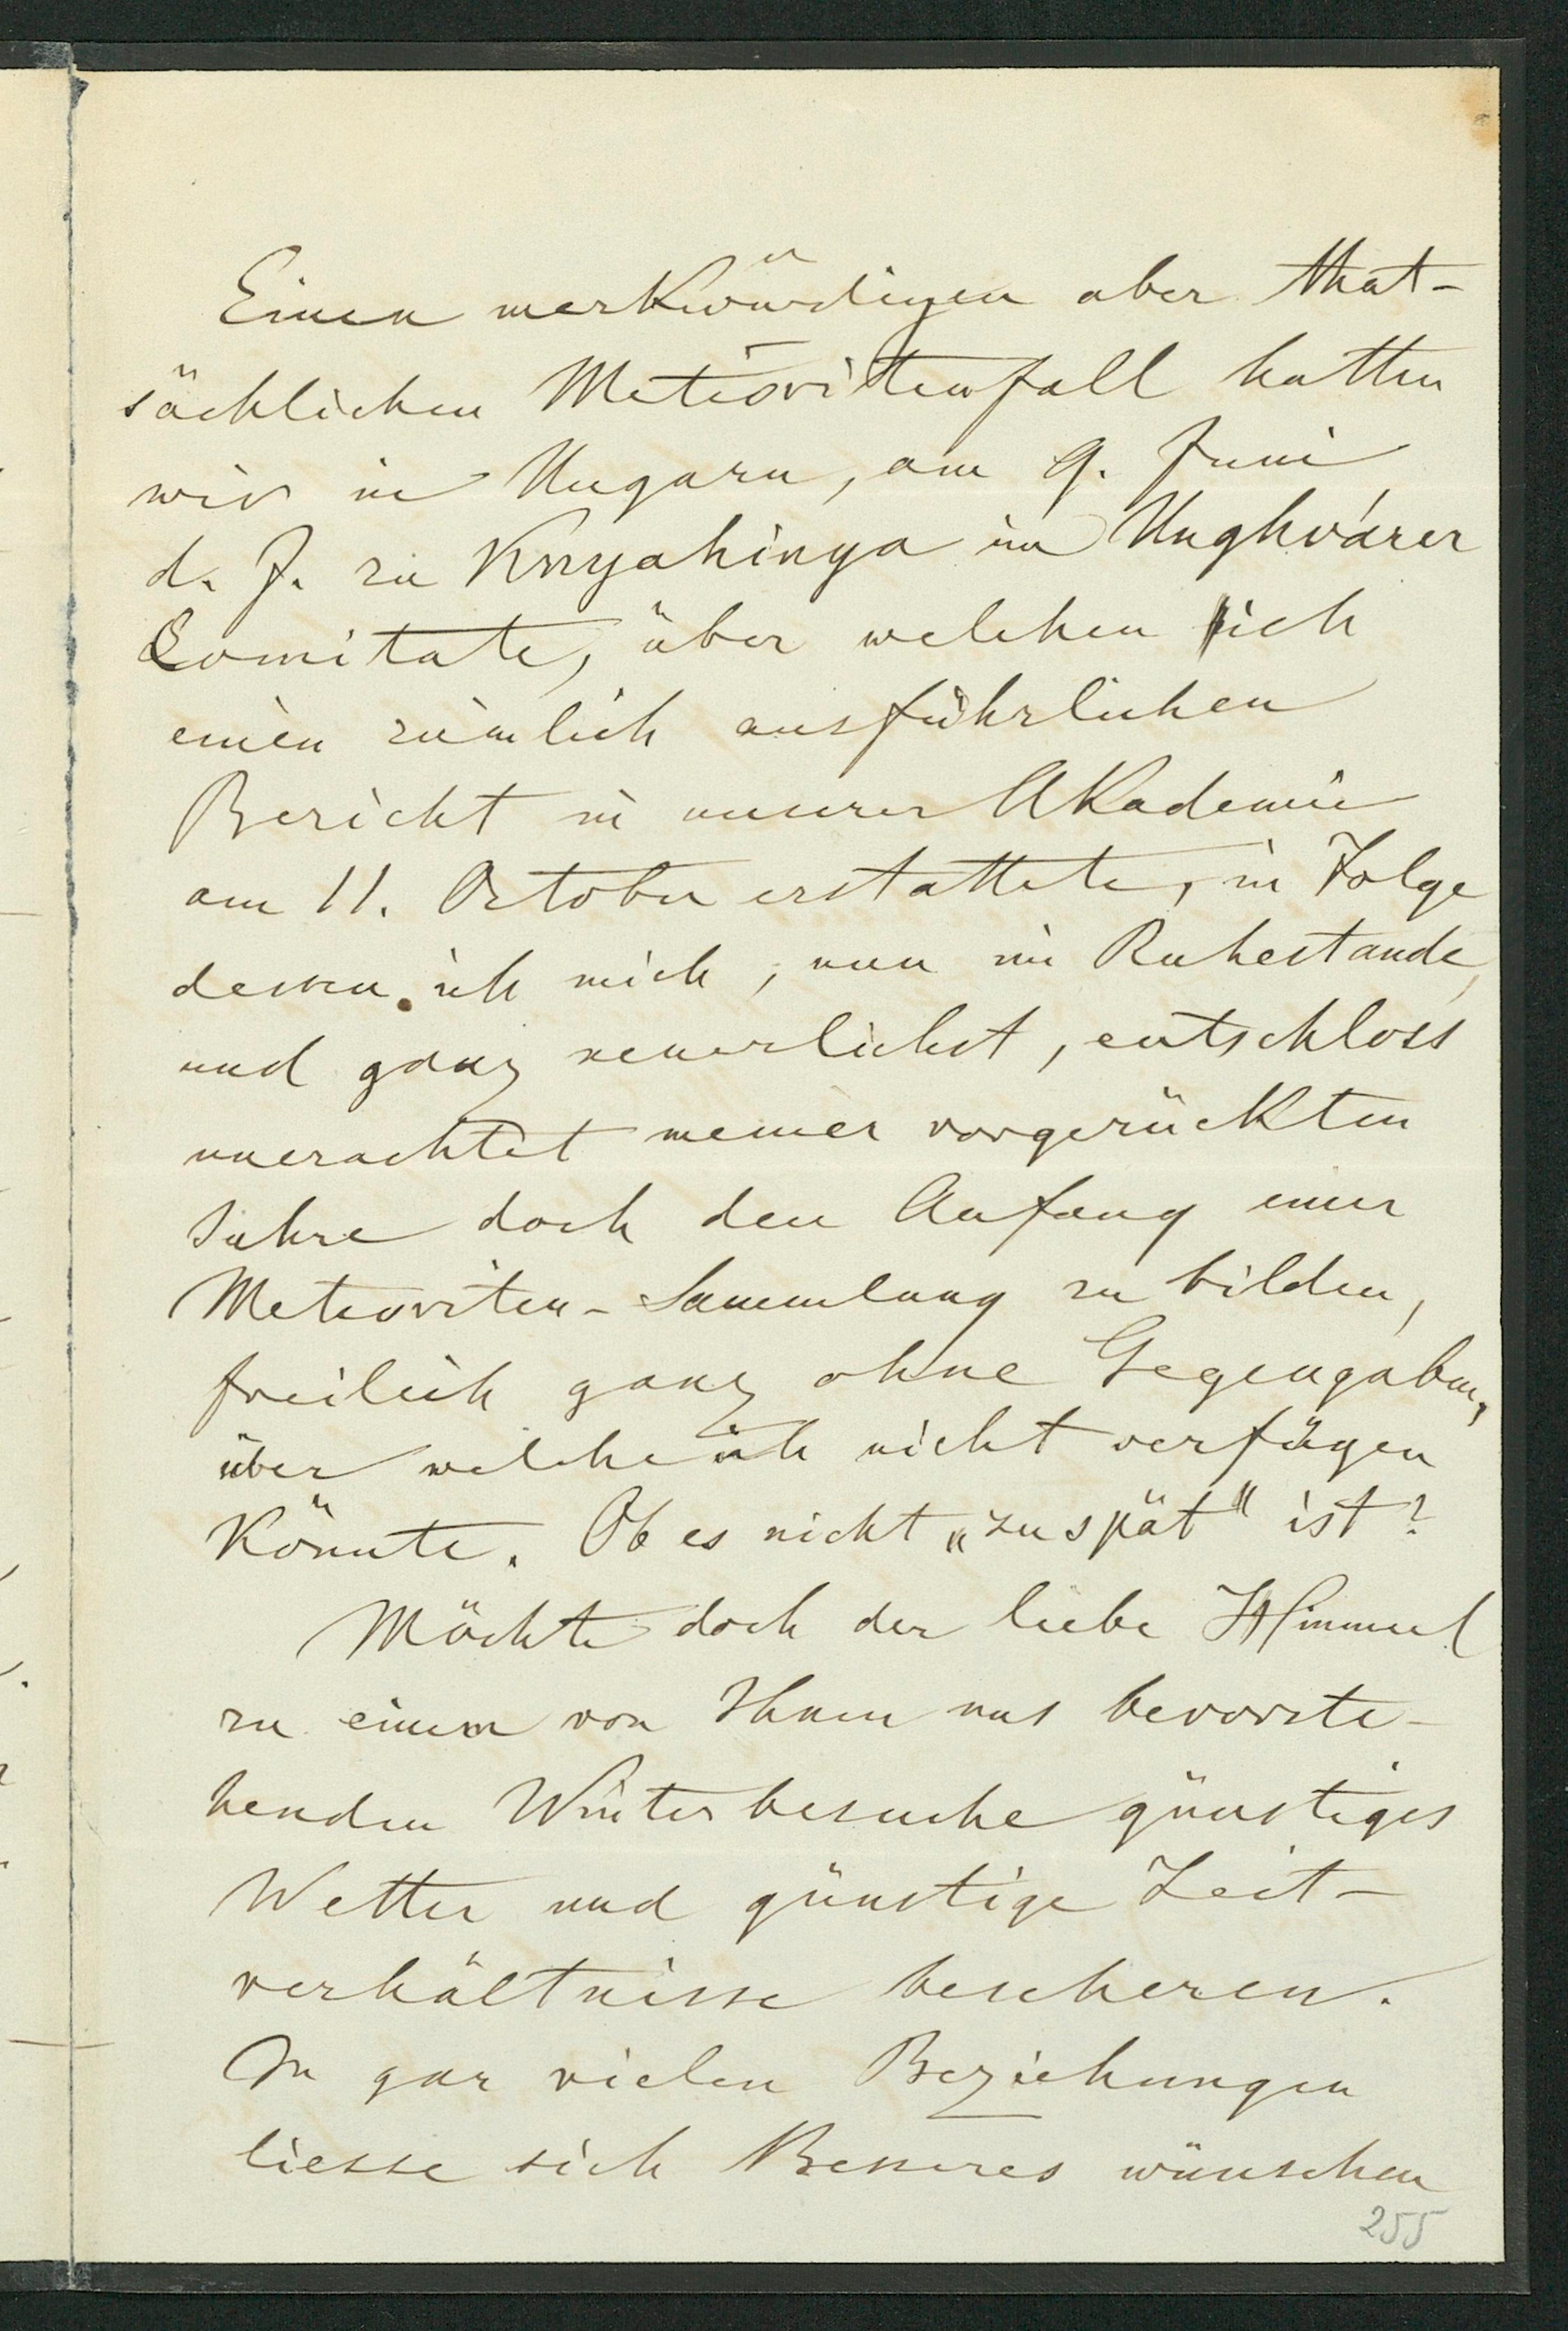 Einen merkwürdigen aber that-
sächlichen Meteoritenfall hatten
wir in Ungarn, am 9. Juni
d. J. zu Knyahinya im Unghvárer
Comitate, über welchen ich
einen ziemlich ausführlichen
Bericht in unserer Akademie
am 11. October erstattete, in Folge
dessen ich mich, nun im Ruhestande,
und ganz neuerlichst, entschloss
unerachtet meiner vorgerückten
Jahre doch den Anfang einer
Meteoriten-Sammlung zu bilden,
freilich ganz ohne Gegengaben,
über welche ich nicht verfügen
könnte. Ob es nicht „zu spät“ ist?
Möchte doch der liebe Himmel
zu einem von Ihnen uns bevorste-
henden Winterbesuche günstiges
Wetter und günstige Zeit-
verhältnisse bescheren.
In gar vielen Beziehungen
liesse sich Besseres wünschen
255